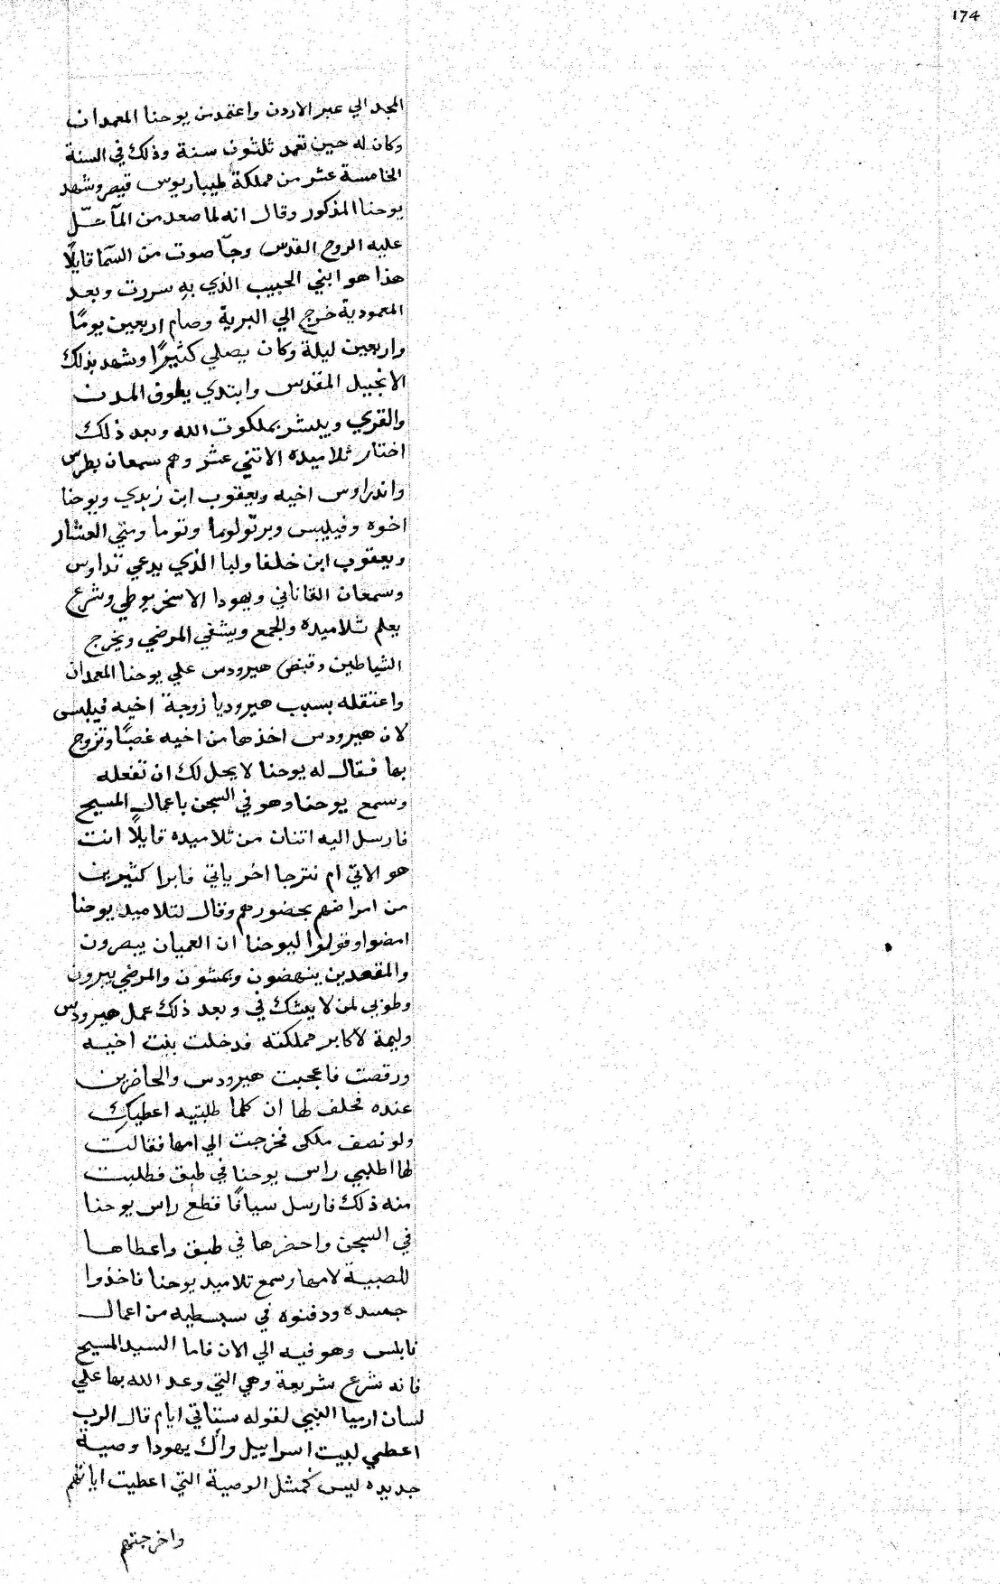 174
المجد الي عبر الاردن واعتمد من يوحنا المعمدان
وكان له حين تعمد ثلثون سنة وذلك في السنة
الخامسة عشر من مملكة طيباريوس قيصر وشهد
يوحنا المذكور وقال انه لما صعد من المآ حّل
عليه الروح القدس وجآ صوت من السّما قايلاً
هذا هو ابني الحبيب الذي به سررت وبعد
المعمودية خرج الي البرية وصام اربعين يومًا
واربعين ليلة وكان يصلي كثيرًا وشهد بذلك
الانجيل المقدس وابتدي يطوف المدن
والقري ويبشر بملكوت الله وبعد ذلك
اختار ثلاميذه الاثني عشر وهم سمعان بطرس
واندراوس اخيه ويعقوب ابن زبدي ويوحنا
اخوه وفيلبس وبرتولوما وتوما ومتي العشار
ويعقوب ابن خلفا ولبا الذي يدعي تداوس
وسمعان القاناني ويهودا الاسخريوطي وشرع
يعلم تلاميذه والجمع ويشفي المرضي ويخرج
الشياطين وقبض هيرودس علي يوحنا المعمدان
واعتقله بسبب هيروديا زوجة اخيه فيلبس
لان هيرودس اخذها من اخيه غصبًا وتزوج
بها فقال له يوحنا لا يحل لك ان تفعله
وسمع يوحنا وهو في السجن باعمال المسيح
فارسل اليه اتنان من تلاميذه قايلاً انت
هو الاتي ام نترجا اخر ياتي فابرا كثيرين
من امراضهم بحضورهم وقال لتلاميذ يوحنا
امضوا وقولوا ليوحنا ان العميان يبصرون
والمقعدين ينهضون ويمشون والمرضي يبرون
وطوبي لمن لا يشك في وبعد ذلك عمل هيرودس
وليمة لاكابر مملكته فدخلت بنت اخيه
ورقصت فاعجبت هيرودس والحاضرين
عنده فحلف لها ان كلما طلبتيه اعطيك
ولو نصف ملكي فخرجت الي امها فقالت
لها اطلبي راس يوحنا في طبق فطلبت
منه ذلك فارسل سيافًا قطع راس يوحنا
في السجن واحضرها في طبق واعطاها
للصبية لامها وسمع تلاميذ يوحنا فاخذوا
جسده ودفنوه في سبسطيه من اعمال
نابلس وهو فيه الي الان فاما السيد المسيح
فانه شرع شريعة وهي التي وعد الله بها علي
لسان ارميا النبي لقوله ستاتي ايام قال الرب
اعطي لبيت اسراييل وال يهودا وصية
جديده ليس كمثل الوصية التي اعطيت اباهم
واخرجتهم